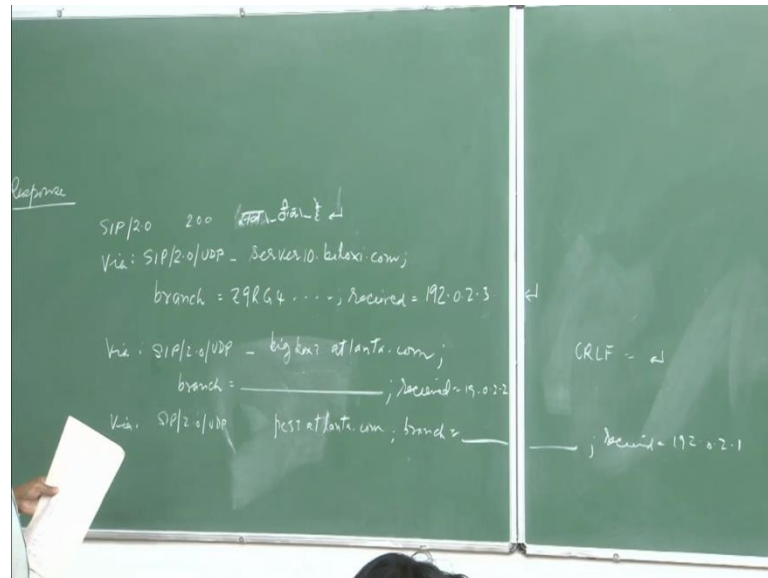 Response
SIP/2.0 200 ठीक_है ↵
Via: SIP/2.0/UDP_ server10.biloxi.com;
branch = Z9RG4 ....; received = 192.0.2.3 ↵
Via: SIP/2.0/UDP _ bigbox3 atlanta.com;
branch = ____________ ; received = 19.0.2.2
Via. SIP/2.0/UDP pc33 atlanta.com; branch = ____ ____ ; received = 192.0.2.1
CRLF = ↵